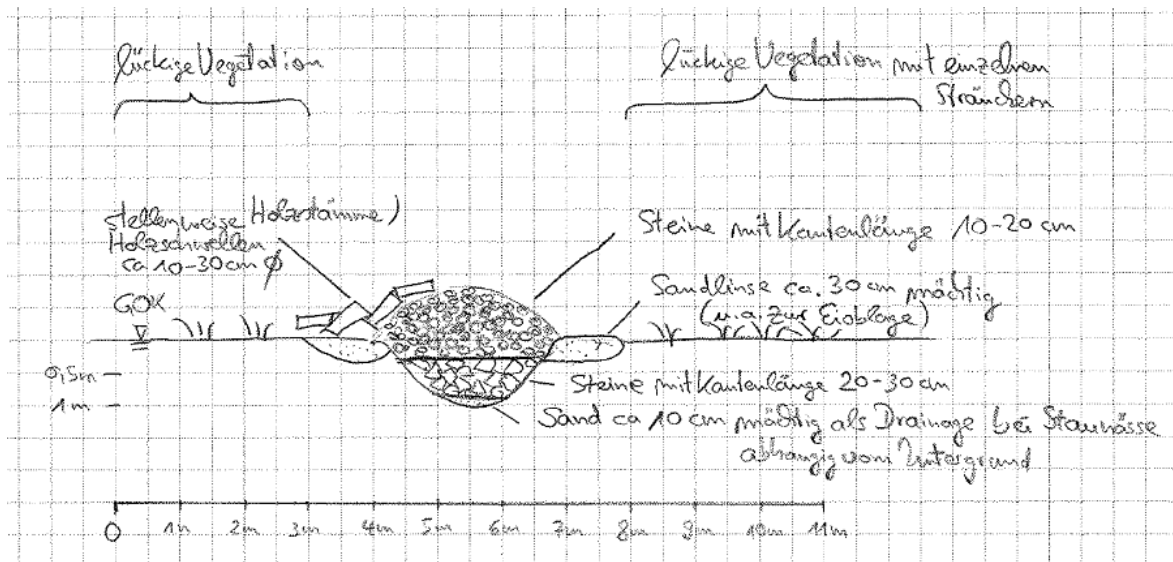 lückige Vegetation
lückige Vegetation mit einzelnen
Sträuchern
stellenweise Holzstämme)
Holzschwellen
ca 10-30cm Ø
Steine mit Kantenlänge 10-20 cm
GOK
Sandlinse ca. 30 cm mächtig
(u.a. zur Eiablage)
0,5m
1m
Steine mit Kantenlänge 20-30 cm
Sand ca 10 cm mächtig als Drainage bei Staunässe
abhängig vom Untergrund
0 1m 2m 3m 4m 5m 6m 7m 8m 9m 10m 11m